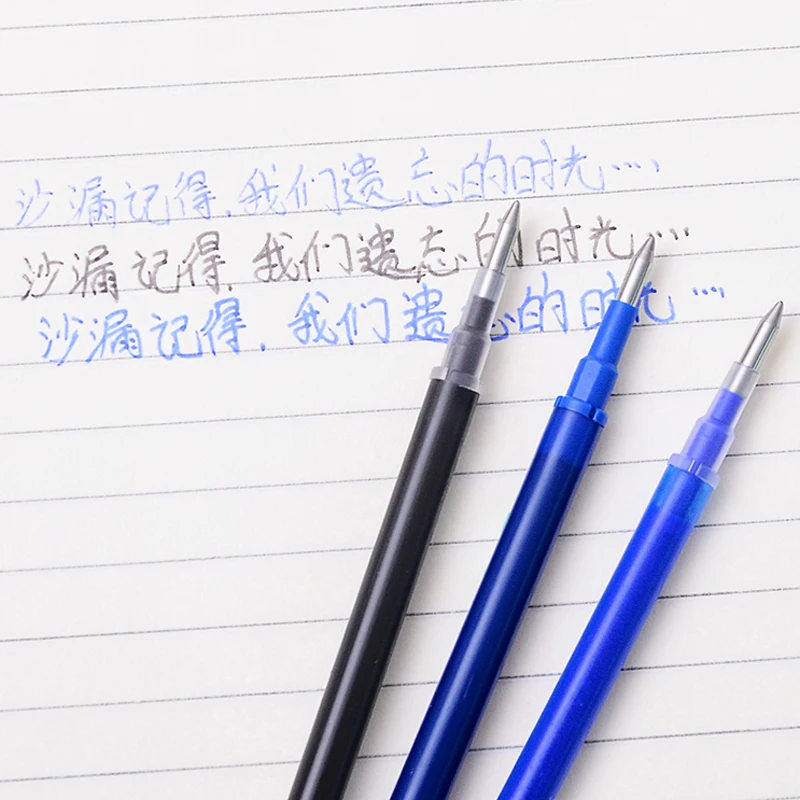 沙漏记得,我们遗忘的时光....
沙漏记得,我们遗忘的时光...
沙漏记得,我们遗忘的时光...